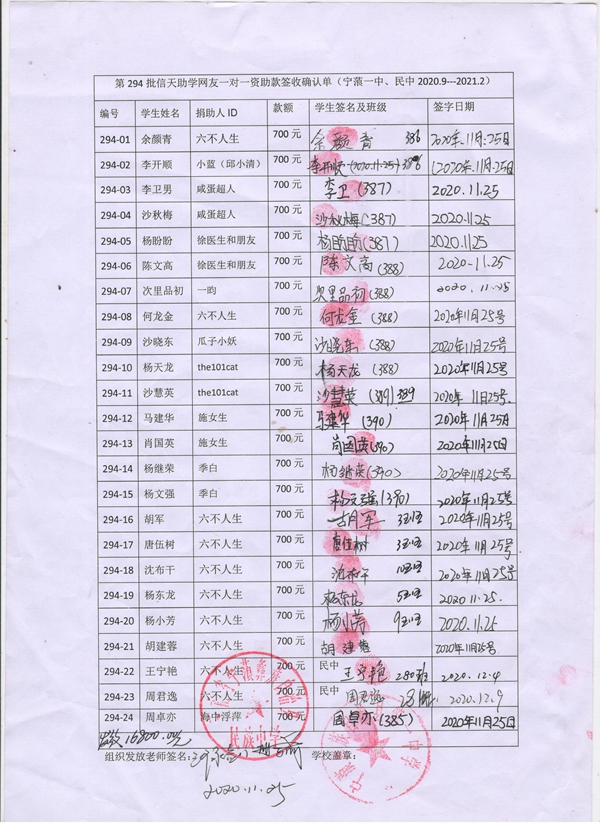 第 294 批信天助学网友一对一资助款签收确认单（宁蒗一中、民中 2020.9---2021.2）
编号 学生姓名 捐助人 ID 款额 学生签名及班级 签字日期
294-01 余颜青 六不人生 700 元 余颜青 386 2020年.11月.25日
294-02 李开顺 小蓝（邱小清） 700 元 李开顺 (2020.11.25) (2020年.11月.25日
294-03 李卫男 咸蛋超人 700 元 李卫 (387) 2020.11.25
294-04 沙秋梅 咸蛋超人 700 元 沙秋梅(387) 2020.11.25
294-05 杨盼盼 徐医生和朋友 700 元 杨盼盼(387) 2020.11.25
294-06 陈文高 徐医生和朋友 700 元 陈文高(388) 2020-11.25
294-07 次里品初 一昀 700 元 次里品初(388) 2020.11.25
294-08 何龙金 六不人生 700 元 何龙金(388) 2020年11月25号
294-09 沙晓东 瓜子小妖 700 元 沙晓东(388) 2020年11月25号
294-10 杨天龙 the101cat 700 元 杨天龙(388) 2020年11月25号
294-11 沙慧英 the101cat 700 元 沙慧英(389) 389 2020年.11月25号
294-12 马建华 施女生 700 元 马建华(390) 2020年11月25日
294-13 肖国英 施女生 700 元 肖国英(390) 2020年11月25日
294-14 杨继荣 季白 700 元 杨继英(390) 2020年11月25号
294-15 杨文强 季白 700 元 杨文强(390) 2020年11月25号
294-16 胡军 六不人生 700 元 胡军 2020年11月25号
294-17 唐伍树 六不人生 700 元 唐伍树 2020年11月25号
294-18 沈布干 六不人生 700 元 沈布干 2020年11月25号
294-19 杨东龙 六不人生 700 元 杨东龙 2020.11.25.
294-20 杨小芳 六不人生 700 元 杨小芳 2020.11.25
294-21 胡建蓉 六不人生 700 元 胡建蓉 2020年11月25号
294-22 王宁艳 六不人生 700 元 民中 王宁艳 280班 2020.12.4
294-23 周君逸 六不人生 700 元 民中 周君逸 2020.12.9
294-24 周卓亦 海中浮萍 700 元 周卓亦(385) 2020年11月25日
16800.00元
组织发放老师签名: 学校盖章:
2020.11.25
民族中学